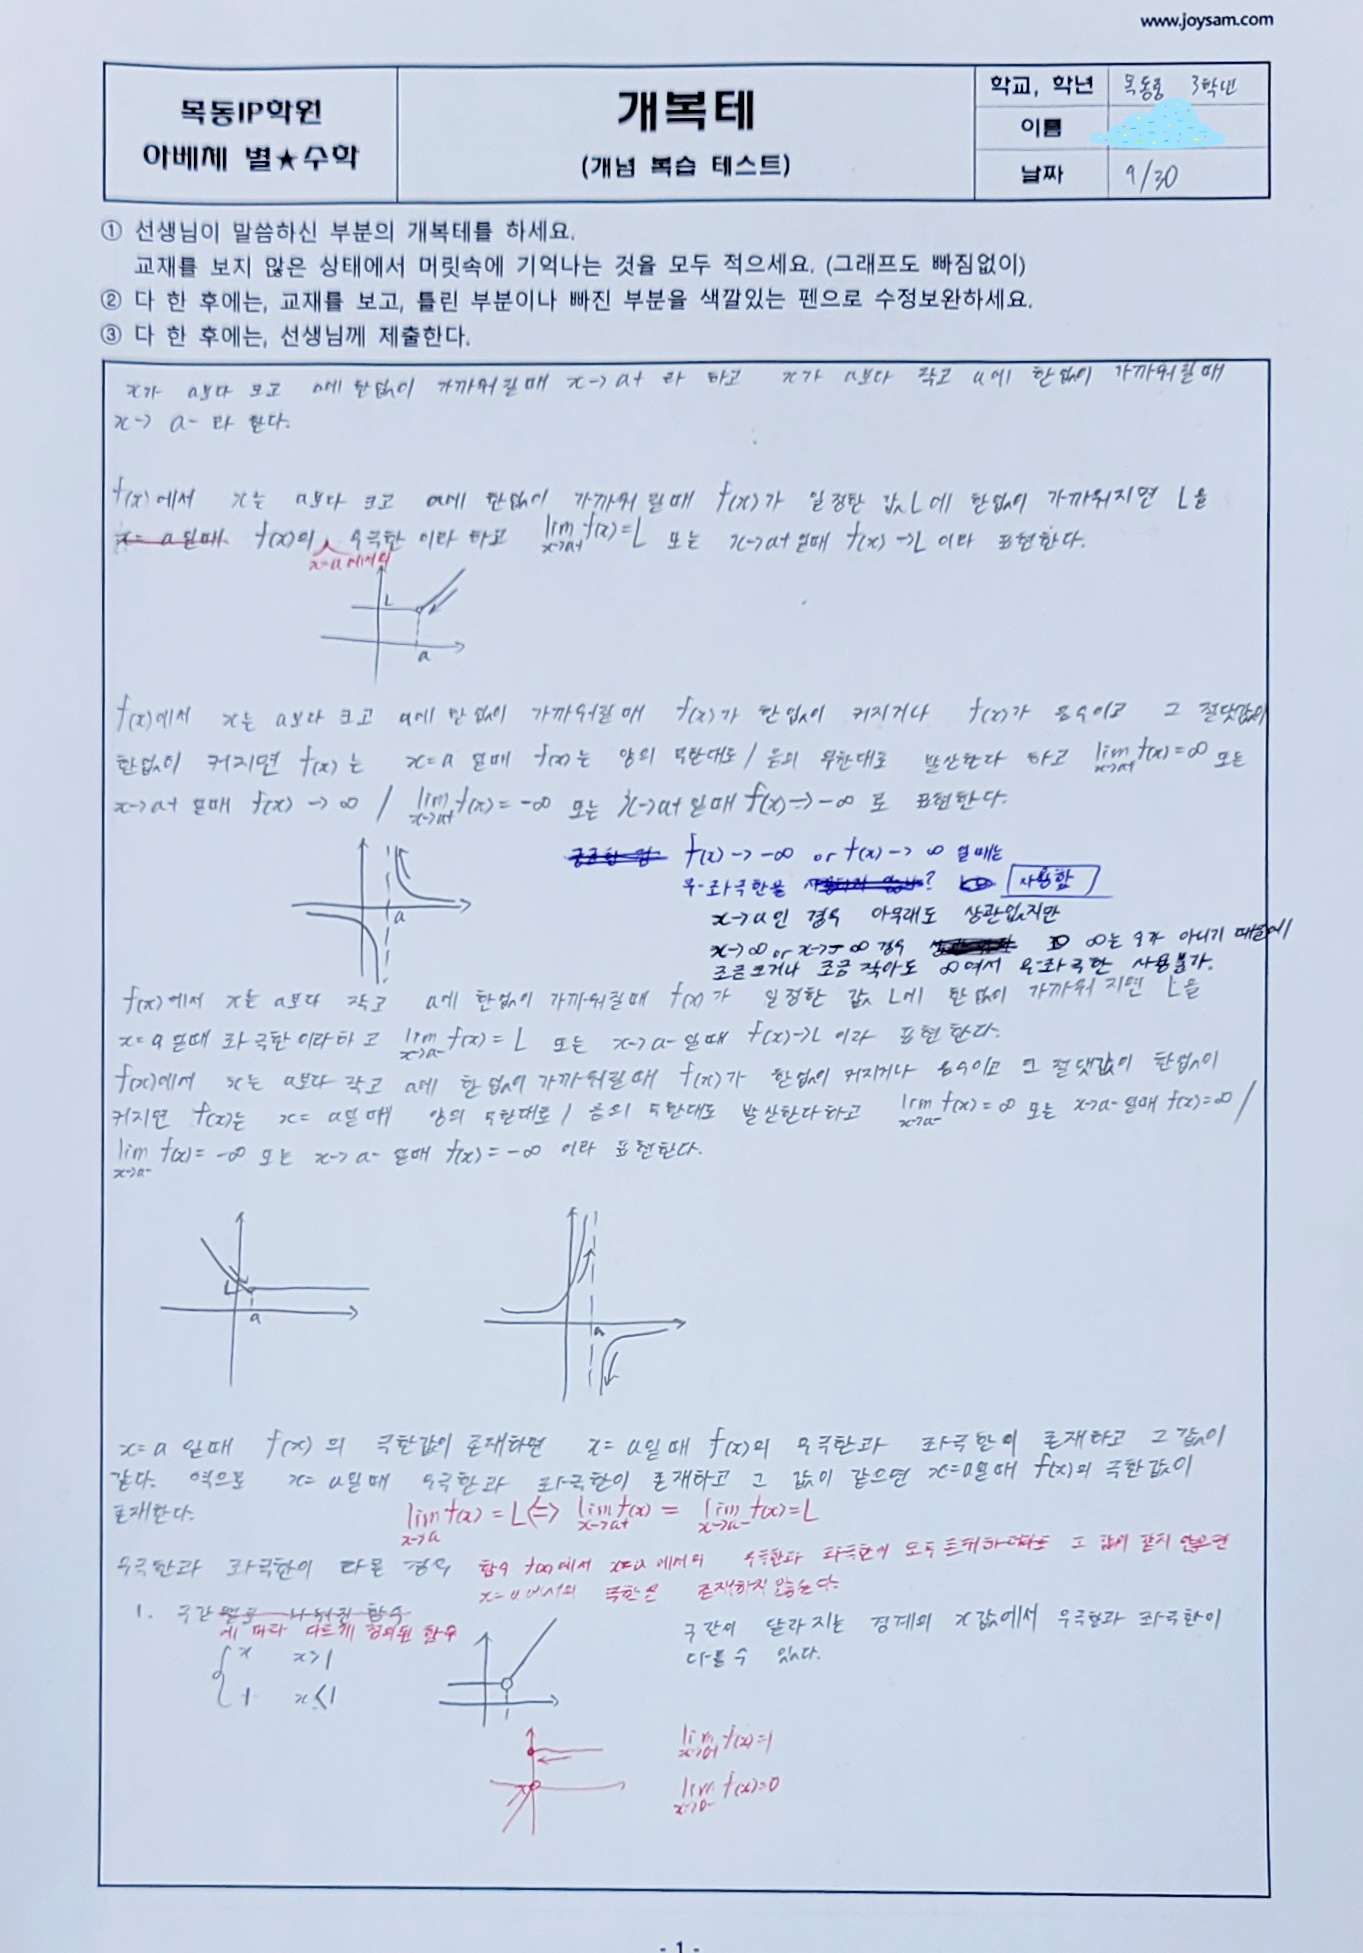 www.joysam.com
목동IP학원
아베체 별★수학
개복테
(개념 복습 테스트)
학교, 학년 목동중 3학년
이름
날짜 9/30
① 선생님이 말씀하신 부분의 개복테를 하세요.
교재를 보지 않은 상태에서 머릿속에 기억나는 것을 모두 적으세요. (그래프도 빠짐없이)
② 다 한 후에는, 교재를 보고, 틀린 부분이나 빠진 부분을 색깔있는 펜으로 수정보완하세요.
③ 다 한 후에는, 선생님께 제출한다.
x가 a보다 크고 a에 한없이 가까워질때 x→a+ 라 하고 x가 a보다 작고 a에 한없이 가까워질때
x→ a- 라 한다.
f(x)에서 x는 a보다 크고 a에 한없이 가까워 질때 f(x)가 일정한 값 L에 한없이 가까워지면 L을
x=a 일때 f(x)의 우극한 이라 하고 lim x→a+ f(x)=L 또는 x→a+일때 f(x)→L 이라 표현한다.
x=a에서의
L
a
f(x)에서 x는 a보다 크고 a에 한없이 가까워질때 f(x)가 한없이 커지거나 f(x)가 음수이고 그 절댓값이
한없이 커지면 f(x)는 x=a 일때 f(x)는 양의 무한대로/음의 무한대로 발산한다 하고 lim x→a+ f(x)=∞ 또는
x→a+ 일때 f(x)→∞ / lim x→a+ f(x)=-∞ 또는 x→a+일때 f(x)→-∞ 로 표현한다.
a
f(x)→-∞ or f(x)→∞ 일때는
우·좌극한을 ? 사용함
x→a인 경우 아무래도 상관있지만
x→∞ or x→-∞ 경우 ∞는 수가 아니기 때문에
조금 크거나 조금 작아도 ∞여서 우·좌극한 사용불가.
f(x)에서 x는 a보다 작고 a에 한없이 가까워질때 f(x)가 일정한 값 L에 한없이 가까워지면 L을
x=a일때 좌극한이라하고 lim x→a- f(x)=L 또는 x→a-일때 f(x)→L 이라 표현한다.
f(x)에서 x는 a보다 작고 a에 한없이 가까워질때 f(x)가 한없이 커지거나 음수이고 그 절댓값이 한없이
커지면 f(x)는 x=a일때 양의 무한대로/음의 무한대로 발산한다하고 lim x→a- f(x)=∞ 또는 x→a-일때 f(x)=∞/
lim x→a- f(x)=-∞ 또는 x→a-일때 f(x)=-∞ 이라 표현한다.
L
a
a
x=a일때 f(x)의 극한값이 존재하면 x=a일때 f(x)의 우극한과 좌극한이 존재하고 그 값이
같다. 역으로 x=a일때 우극한과 좌극한이 존재하고 그 값이 같으면 x=a일때 f(x)의 극한값이
존재한다. lim x→a f(x)=L ⇔ lim x→a+ f(x) = lim x→a- f(x)=L
우극한과 좌극한이 다른 경우 함수 f(x)에서 x=a에서의 우극한과 좌극한이 모두 존재하더라도 그 값이 같지 않으면
x=a에서의 극한은 존재하지 않는다.
1. 구간별로 나눠진 함수
에 따라 다르게 정의된 함수
구간이 달라지는 경계의 x값에서 우극한과 좌극한이
다를수 있다.
x x>1
1 x≤1
1
lim x→0+ f(x)=1
lim x→0- f(x)=0
- 1 -